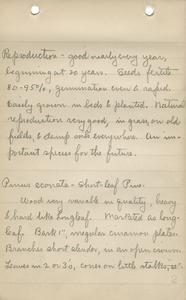 Reproduction - good nearly every year,
beginning at 20 years. Seeds fertile
80-95%, germination even & rapid.
Easily grown in beds & planted. Natural
reproduction very good, in grass, on old
fields, & damp soils everywhere. An im-
portant species for the future.
Pinus echinata - Short-leaf Pine:
Wood very variable in quality, heavy
& hard like Longleaf. Marketed as Long-
leaf. Bark 1", irregular cinnamon plates.
Branches short slender, in an open crown.
Leaves in 2 or 3s, cones on little stalks,
2